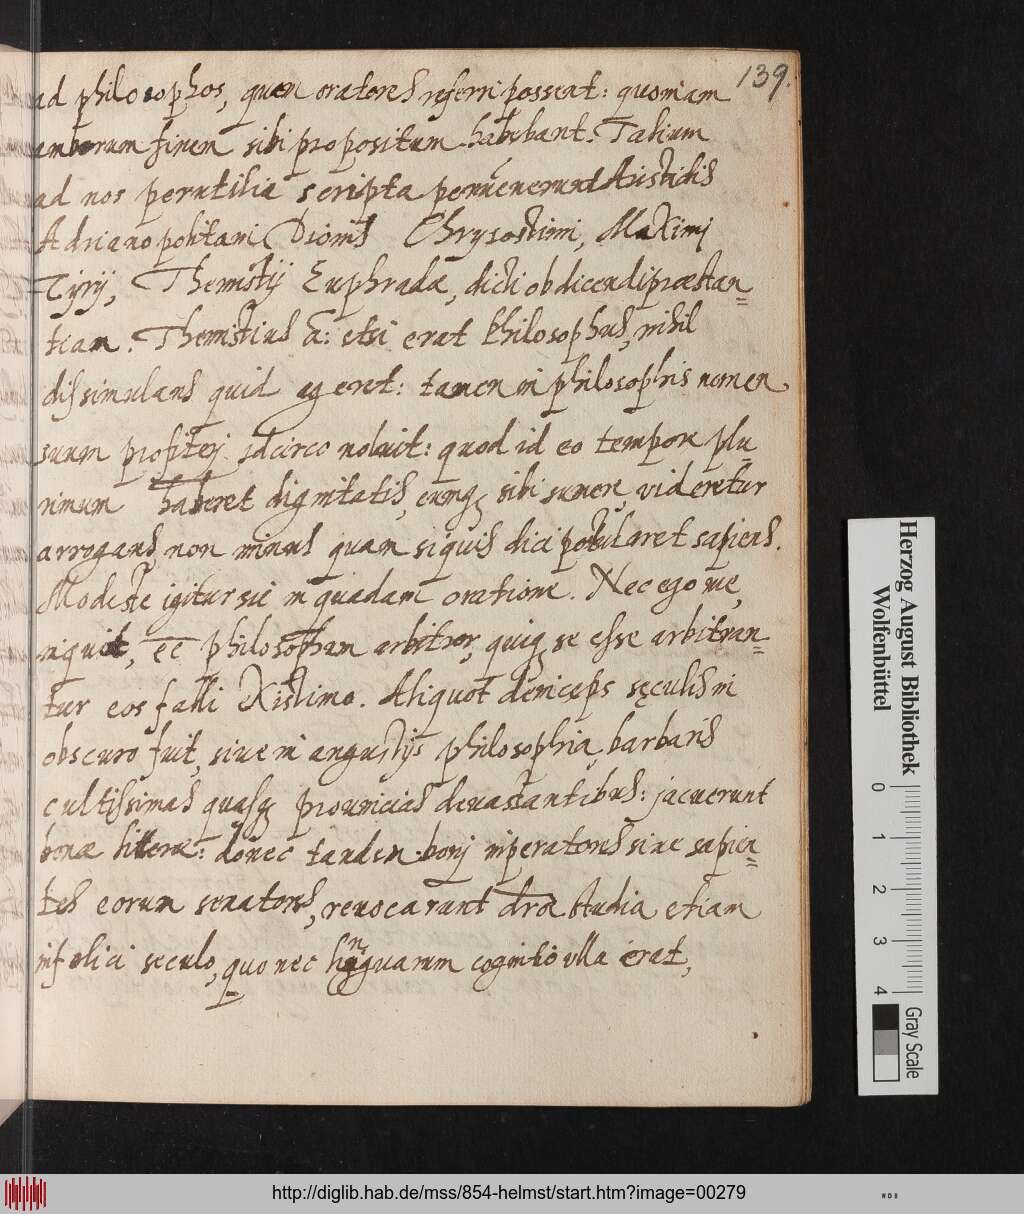 139.
ad philosophos, quàm oratores referri possent: quoniam
amborum finem sibi propositum habebant. Talium
ad nos perutilia scripta peruenerunt Aristidis
Adrianopolitani Dionis Chrysostimi, Maximi
Tyrij, Themistij Euphradæ, dicti ob dicendi præstan=
tiam. Themistius a: etsi erat Philosophus, nihil
dissimulans quid ageret: tamen in philosophis nomen
suum profiterj idcirco noluit: quod id eo tempore plu_
rimum haberet dignitatis, eumq; sibi sumere, videretur
arrogans, non minus quam siquis dici postularet sapiens.
Modeste igitur sic in quadam oratione. Nec ego me,
inquit, ee philosophum arbitror, quiq; se esse arbitran=
tur eos falli existimo. Aliquot deinceps sęculis in
obscuro fuit, siue in angustijs philosophia, barbaris
cultissimas quasq; prouincias deuastantibus: jacuerunt
bonæ litteræ: donec tandem bonj inperatores siue sapien=
tes eorum senatores, reuocarunt dra studia etiam
infelici seculo, quo nec linguarum cognitio vlla erat,
Herzog August Bibliothek
Wolfenbüttel
0 1 2 3 4
Gray Scale
http://diglib.hab.de/mss/854-helmst/start.htm?image=00279